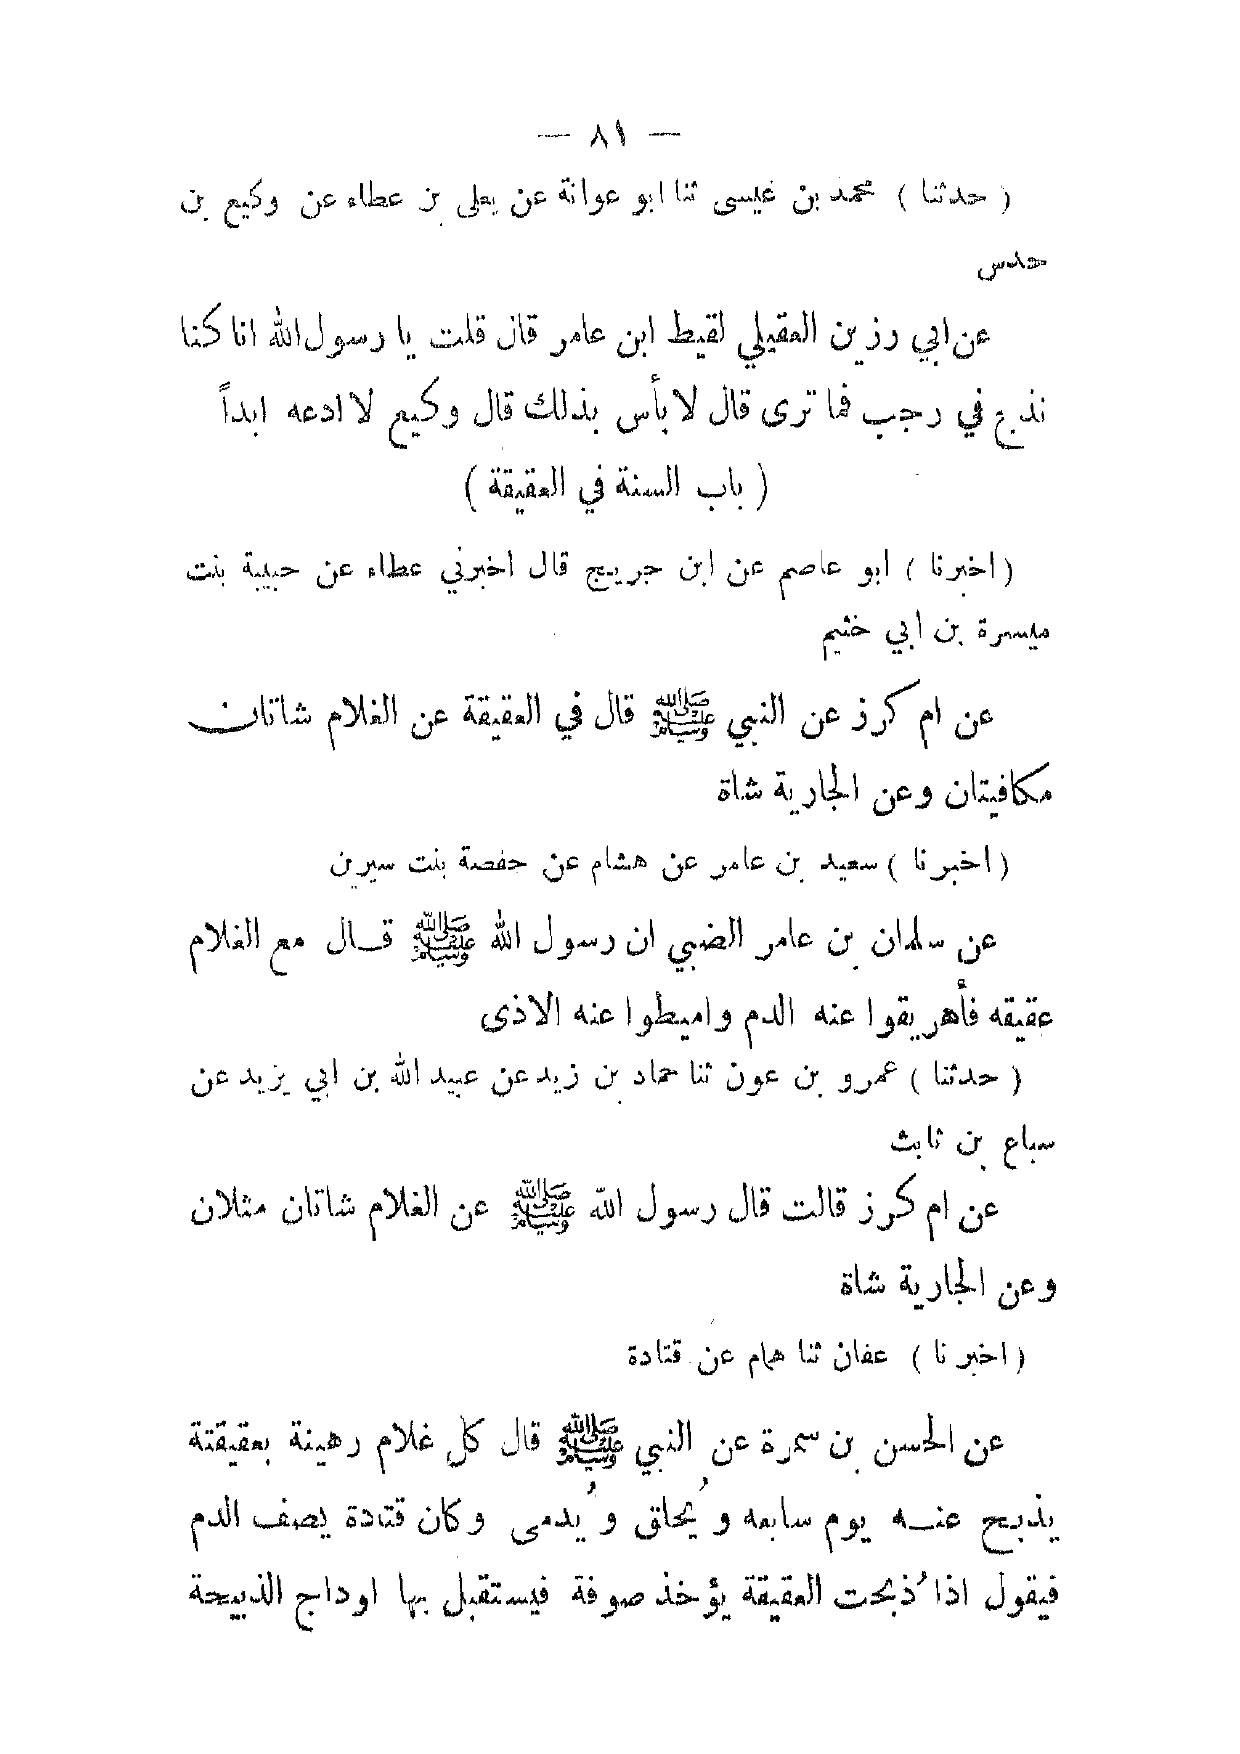 — ٨١ —
( حدثنا ) محمد بن عيسى ثنا ابو عوانة عن يعلى بن عطاء عن وكيع بن
حدس
عن ابي رزين العقيلي لقيط ابن عامر قال قلت يا رسول الله انا كنا
نذبح في رجب فما ترى قال لا بأس بذلك قال وكيع لا ادعه ابداً
( باب السنة في العقيقة )
( اخبرنا ) ابو عاصم عن ابن جريج قال اخبرني عطاء عن حبيبة بنت
ميسرة بن ابي خثيم
عن ام كرز عن النبي ﷺ قال في العقيقة عن الغلام شاتان
مكافيتان وعن الجارية شاة
( اخبرنا ) سعيد بن عامر عن هشام عن حفصة بنت سيرين
عن سلمان بن عامر الضبي ان رسول الله ﷺ قال مع الغلام
عقيقه فأهريقوا عنه الدم واميطوا عنه الاذى
( حدثنا ) عمرو بن عون ثنا حماد بن زيد عن عبيد الله بن ابي يزيد عن
سباع بن ثابث
عن ام كرز قالت قال رسول الله ﷺ عن الغلام شاتان مثلان
وعن الجارية شاة
( اخبرنا ) عفان ثنا همام عن قتادة
عن الحسن بن سمرة عن النبي ﷺ قال كل غلام رهينة بعقيقتة
يذبح عنه يوم سابعه و يُحلق و يُدمى وكان قتادة يصف الدم
فيقول اذا ُذبحت العقيقة يؤخذ صوفة فيستقبل بها اوداج الذبيحة